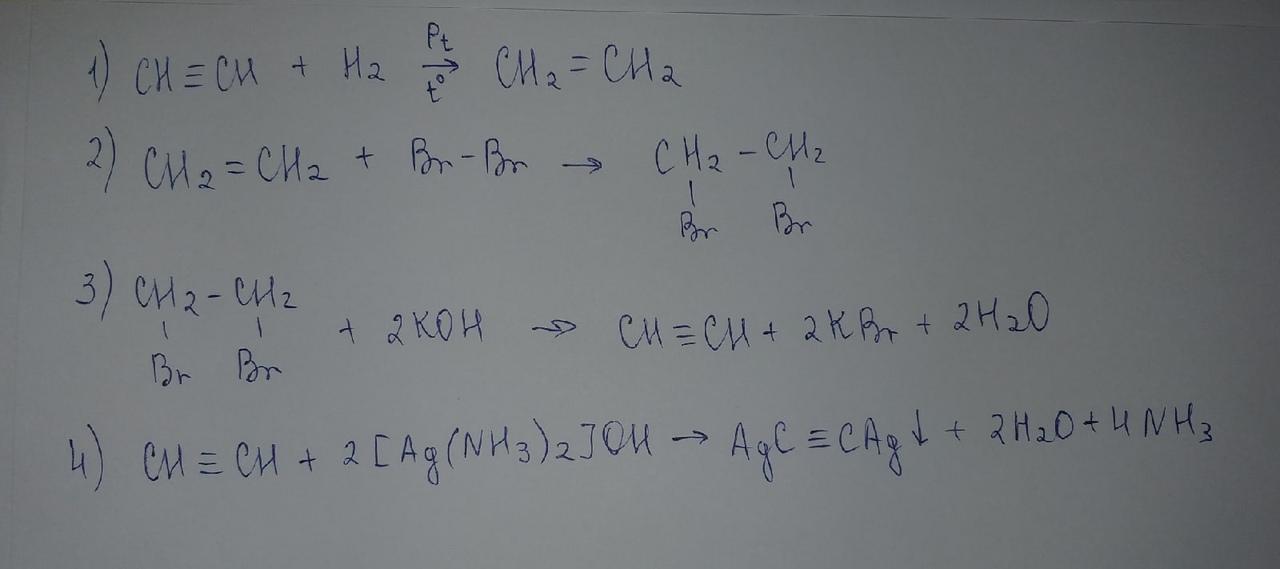 1) CH≡CH + H2 Pt t° → CH2=CH2
2) CH2=CH2 + Br-Br → CH2-CH2
Br Br
3) CH2-CH2 + 2KOH → CH≡CH + 2KBr + 2H2O
Br Br
4) CH≡CH + 2[Ag(NH3)2]OH → AgC≡CAg↓ + 2H2O + 4NH3